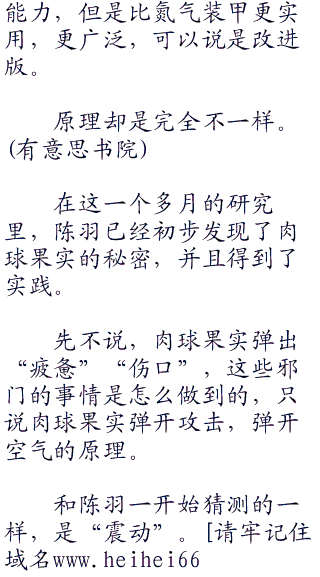 能力，但是比氮气装甲更实
用，更广泛，可以说是改进
版。
原理却是完全不一样。
(有意思书院)
在这一个多月的研究
里，陈羽已经初步发现了肉
球果实的秘密，并且得到了
实践。
先不说，肉球果实弹出
“疲惫”“伤口”，这些邪
门的事情是怎么做到的，只
说肉球果实弹开攻击，弹开
空气的原理。
和陈羽一开始猜测的一
样，是“震动”。[请牢记住
域名www.heihei66